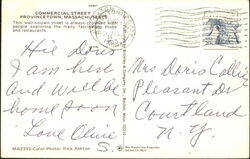 COMMERCIAL STREET
PROVINCETOWN, MASSACHUSETTS
This well-known street is always crowded with
people exploring the many fascinating shops
and restaurants.
Hie Doris
I am here
and will be
home soon
Love Olive
S.
MA2393-Color Photo: Rick Ashton
Mrs Doris Collie
Pleasant Dr
Courtland
N.Y.